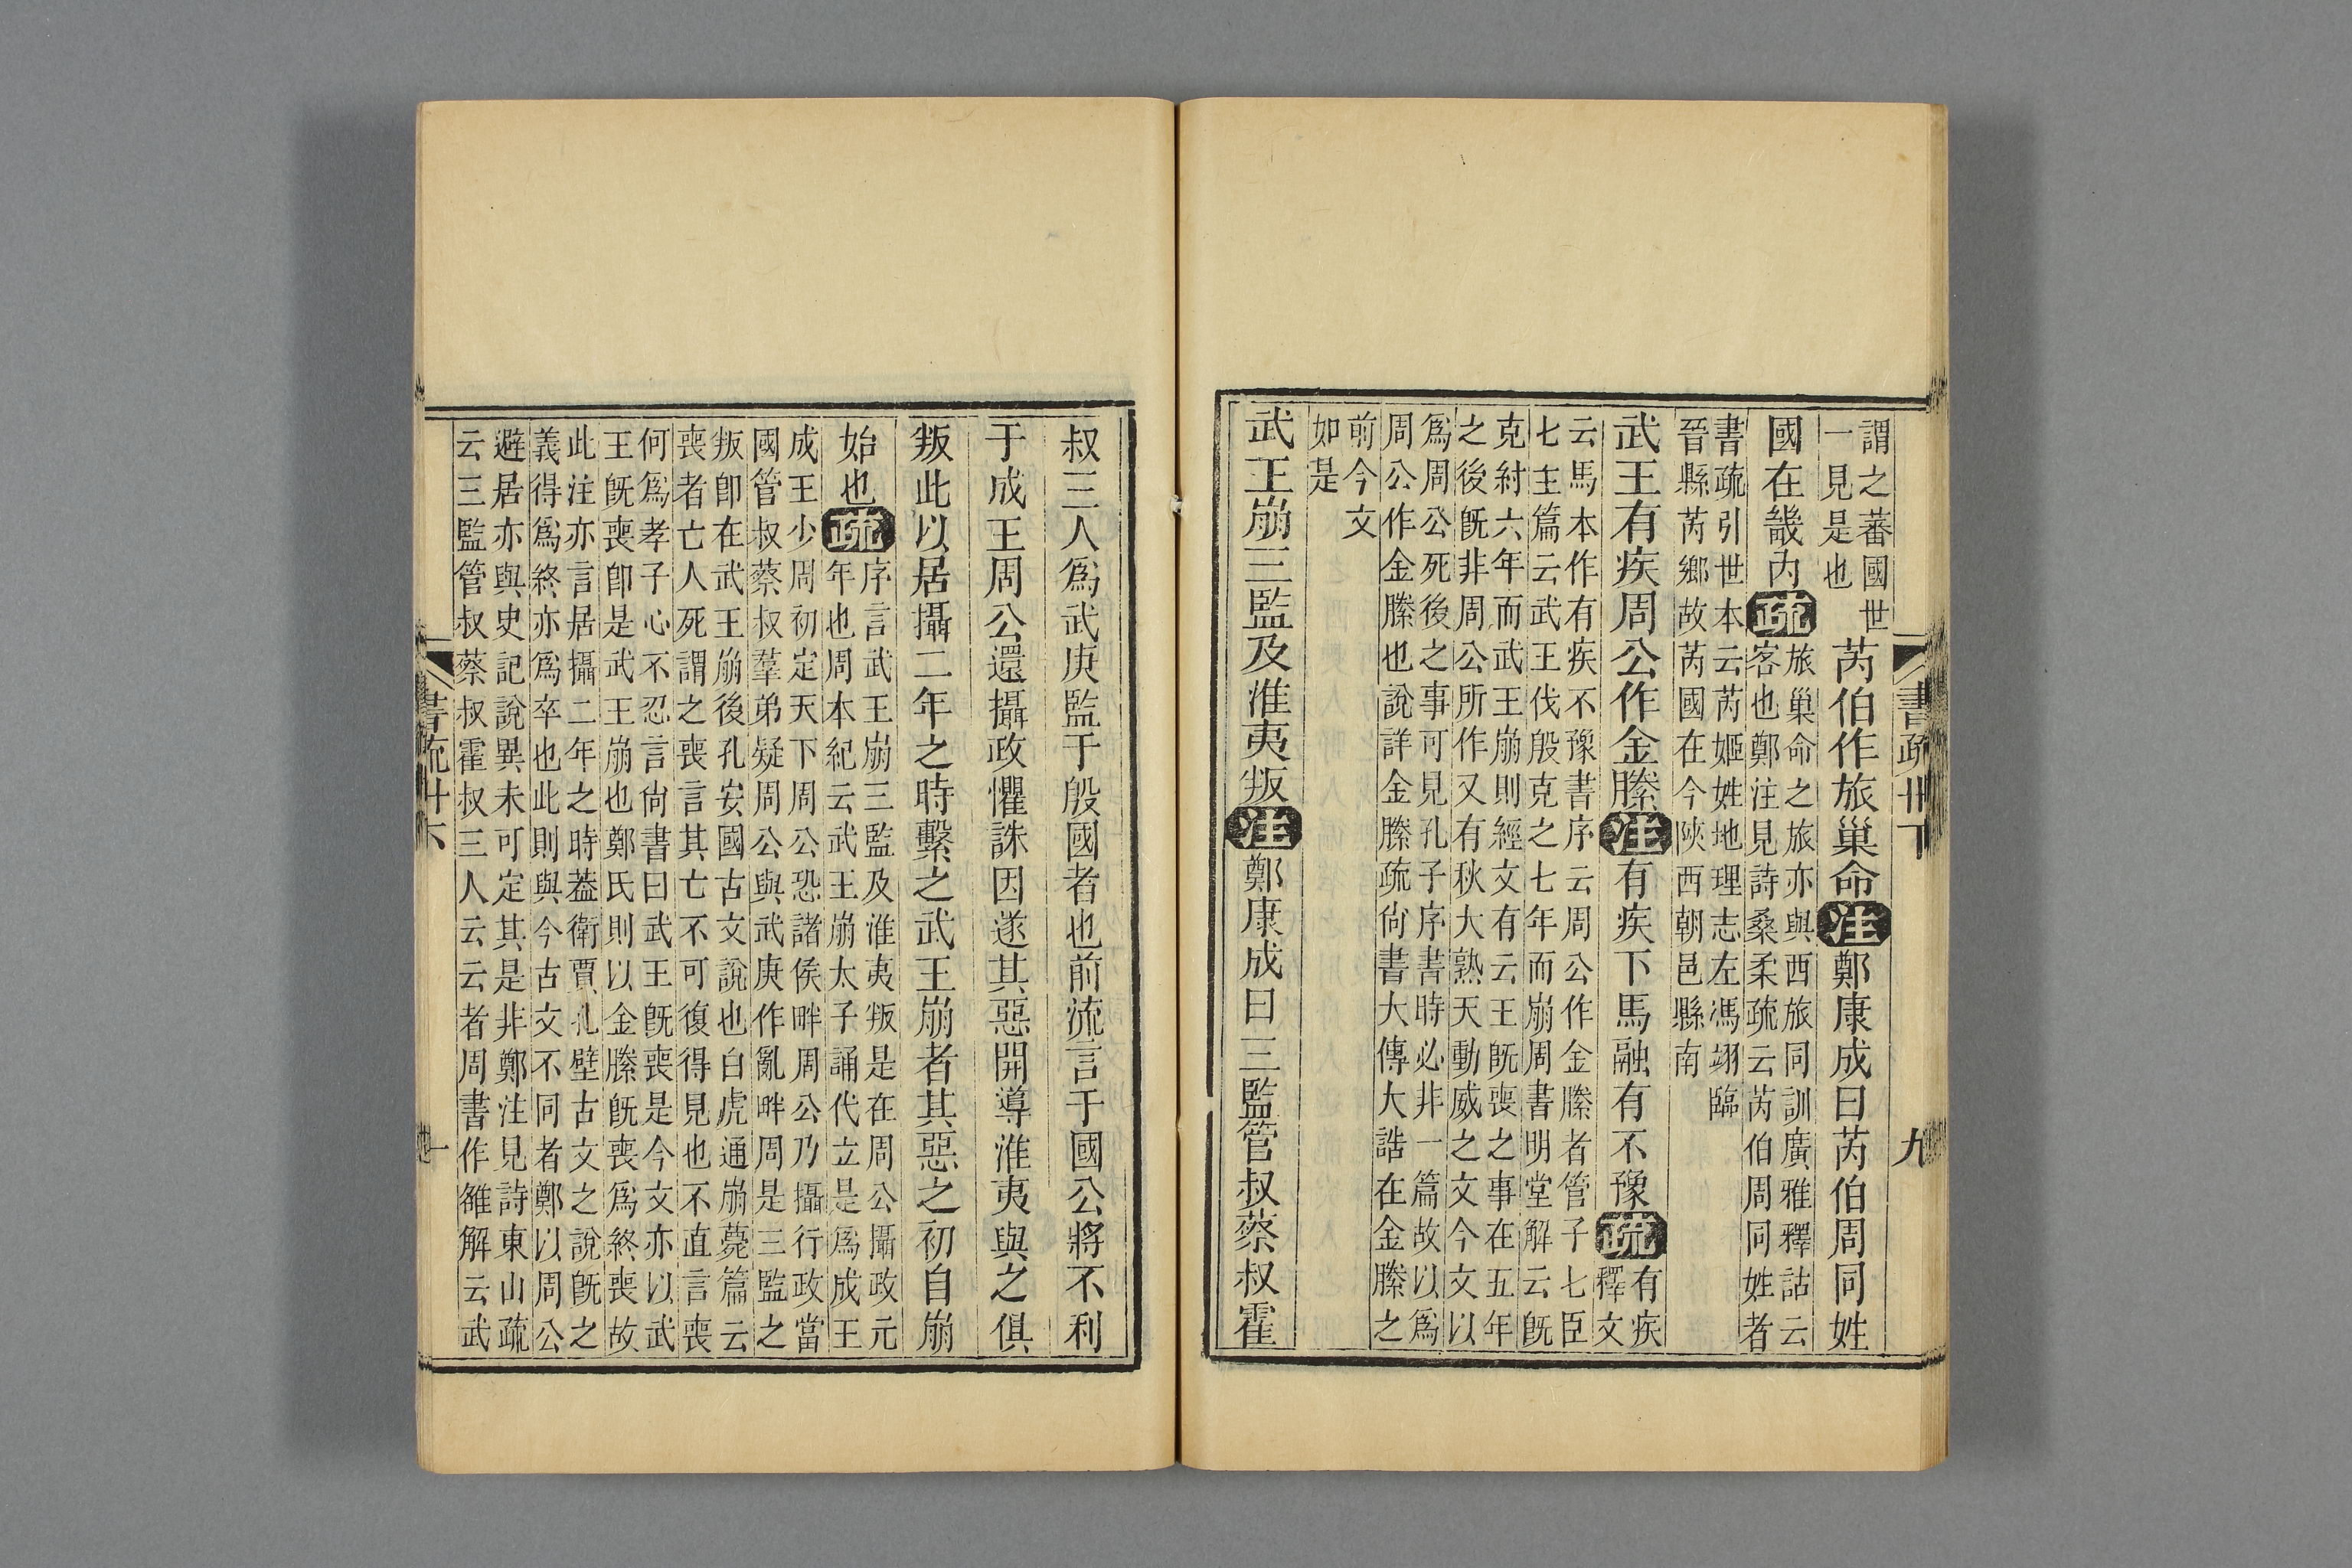 書疏卅下
九
謂之蕃國世
一見是也
芮伯作旅巢命注鄭康成曰芮伯周同姓
國在畿內疏
旅巢命之旅亦與西旅同訓廣雅釋詁云
客也鄭注見詩桑柔疏云芮伯周同姓者
書疏引世本云芮姬姓地理志左馮翊臨
晉縣芮鄉故芮國在今陝西朝邑縣南
武王有疾周公作金縢注有疾下馬融有不豫疏
有疾
釋文
云馬本作有疾不豫書序云周公作金縢者管子七臣
七主篇云武王伐殷克之七年而崩周書明堂解云旣
克紂六年而武王崩則經文有云王旣喪之事在五年
之後旣非周公所作又有秋大熟天動威之文今文以
爲周公死後之事可見孔子序書時必非一篇故以爲
周公作金縢也說詳金縢疏尙書大傳大誥在金縢之
前今文
如是
武王崩三監及淮夷叛注鄭康成曰三監管叔蔡叔霍
叔三人爲武庚監于殷國者也前流言于國公將不利
于成王周公還攝政懼誅因遂其惡開導淮夷與之俱
叛此以居攝二年之時繫之武王崩者其惡之初自崩
始也疏
序言武王崩三監及淮夷叛是在周公攝政元
年也周本紀云武王崩太子誦代立是爲成王
成王少周初定天下周公恐諸侯畔周公乃攝行政當
國管叔蔡叔羣弟疑周公與武庚作亂畔周是三監之
叛卽在武王崩後孔安國古文說也白虎通崩薨篇云
喪者亡人死謂之喪言其亡不可復得見也不直言喪
何爲孝子心不忍言尙書曰武王旣喪是今文亦以武
王旣喪卽是武王崩也鄭氏則以金縢旣喪爲終喪故
此注亦言居攝二年之時葢衛賈孔壁古文之說旣之
義得爲終亦爲卒也此則與今古文不同者鄭以周公
避居亦與史記說異未可定其是非鄭注見詩東山疏
云三監管叔蔡叔霍叔三人云云者周書作雒解云武